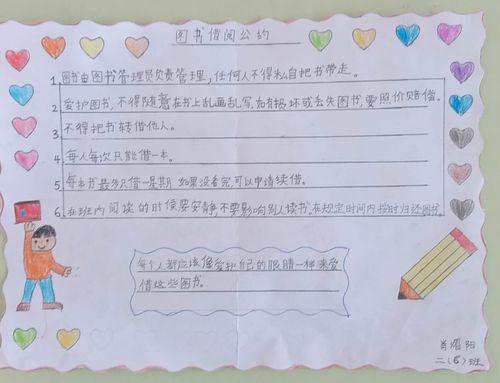 图书借阅公约
1. 图书由图书管理员负责管理，任何人不得私自把书带走。
2. 爱护图书，不得随意在书上乱画乱写，如有损坏或丢失图书，要照价赔偿。
3. 不得把书转借他人。
4. 每人每次只能借一本。
5. 每本书最多只借一星期 如果没看完，可以申请续借。
6. 在班内阅读的时候要安静，不要影响别人读书，在规定时间内按时归还图书。
每个人都应该像爱护自己的眼睛一样来爱
惜这些图书。
肖 阳
二(6)班